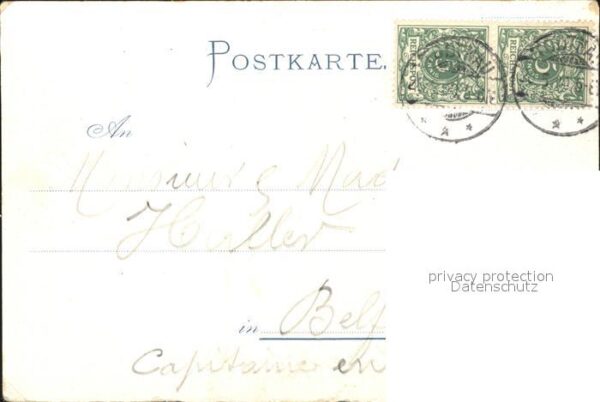 POSTKARTE.
REICHSPOST
5
An
Monsieur & Mad
Haller
in Belf
Capitaine en
privacy protection
Datenschutz